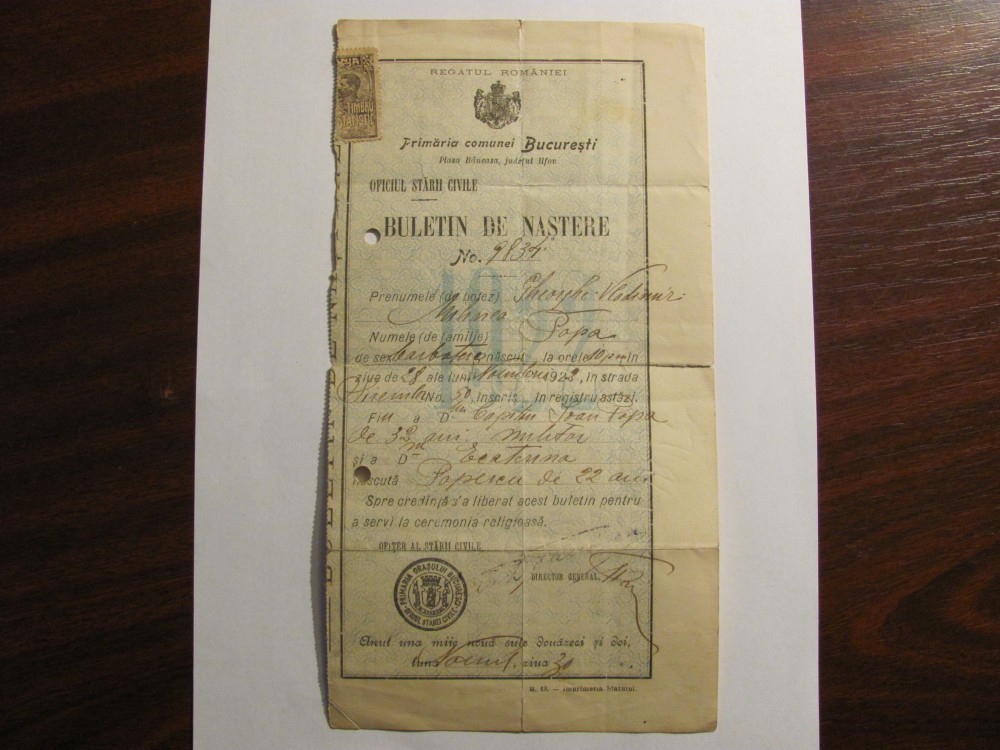 REGATUL ROMÂNIEI
TIMBRU
Primăria comunei București
Plasa Băneasa, județul Ilfov
OFICIUL STĂRII CIVILE
BULETIN DE NAȘTERE
No. 9834
1922
Prenumele (de botez) Gheorghe Vladimir
Mihnea
Numele (de familie) Popa
de sex barbatesc născut la orele 10 pm in
ziua de 28 ale lunii Noembrie 1922, în strada
No. 50, înscris în registru astăzi.
Fiu a Dlui Ioan Popa
de 32 ani militar
și a Dnei Ecaterina
născută Popescu de 22 ani
Spre credință s'a liberat acest buletin pentru
a servi la ceremonia religioasă.
OFIȚER AL STĂRII CIVILE,
DIRECTOR GENERAL,
PRIMARIA ORAȘULUI BUCUREȘTI
OFICIUL STAREI CIVILE
Anul una miie nouă sute douăzeci și doi,
luna Noemb. ziua 30
B. 13. — Imprimeria Statului.